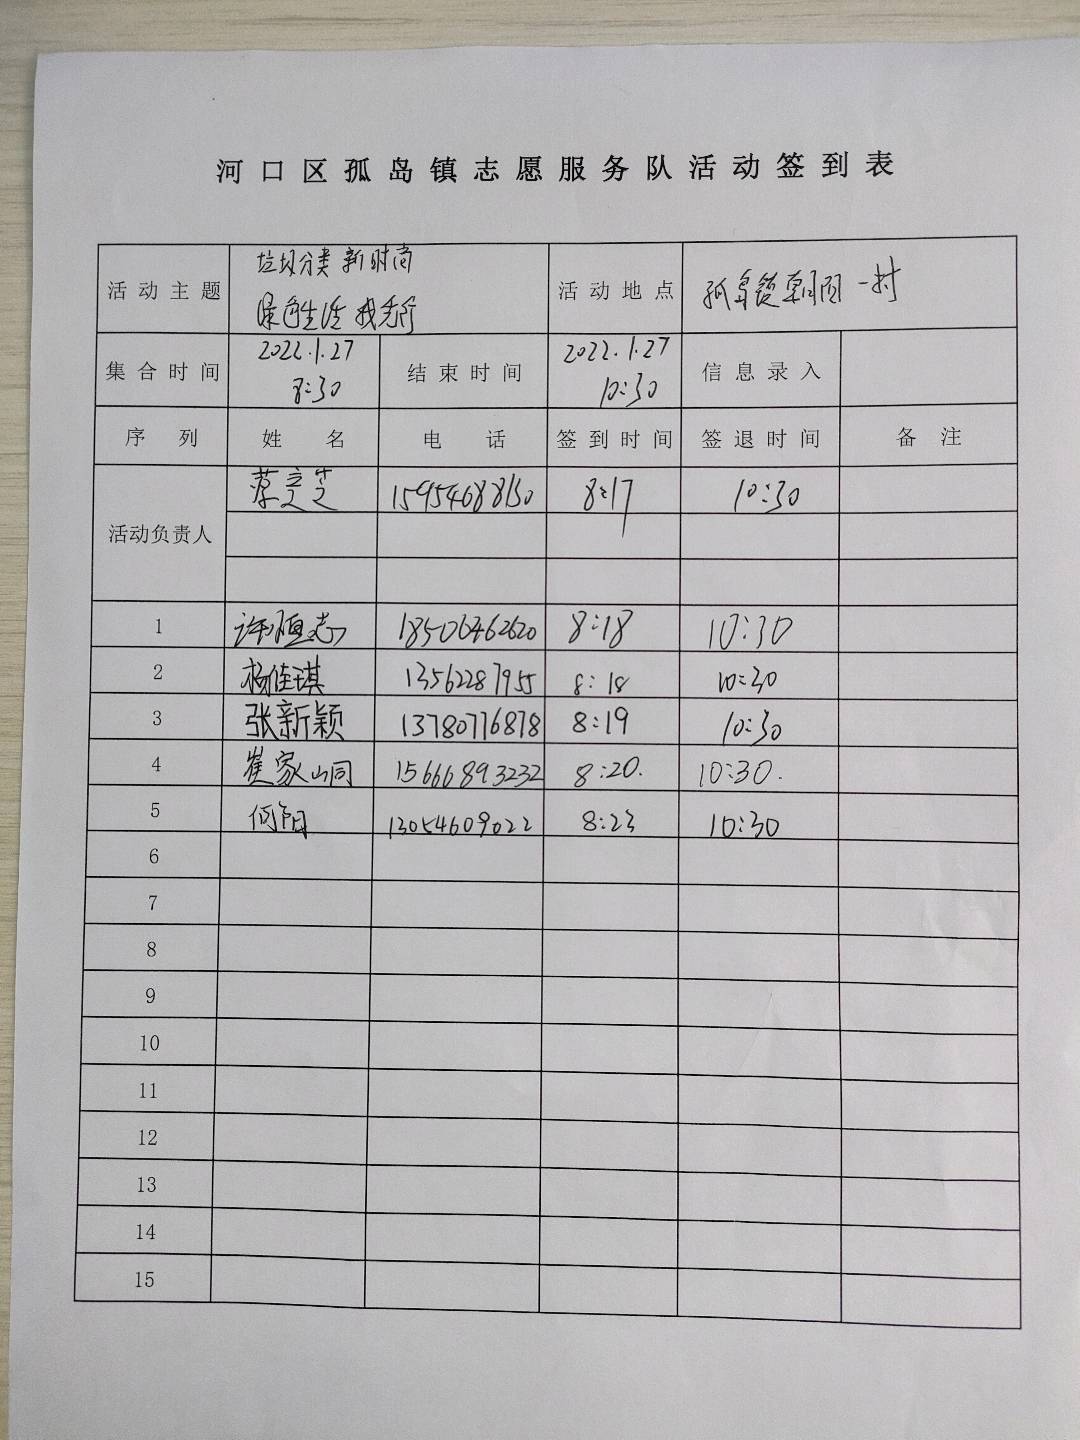 河口区孤岛镇志愿服务队活动签到表
活动主题 垃圾分类 新时尚 活动地点 孤岛镇朝阳一村
绿色生活 我先行
集合时间 2022.1.27 结束时间 2022.1.27 信息录入
8:30 10:30
序列 姓名 电话 签到时间 签退时间 备注
活动负责人 蔡立芝 15954688150 8:17 10:30
1 许恒志 18506462620 8:18 10:30
2 杨佳琪 13562287955 8:18 10:30
3 张新颖 13780776878 8:19 10:30
4 崔家山同 15666893232 8:20. 10:30.
5 何阳 13054609022 8:23 10:30
6
7
8
9
10
11
12
13
14
15